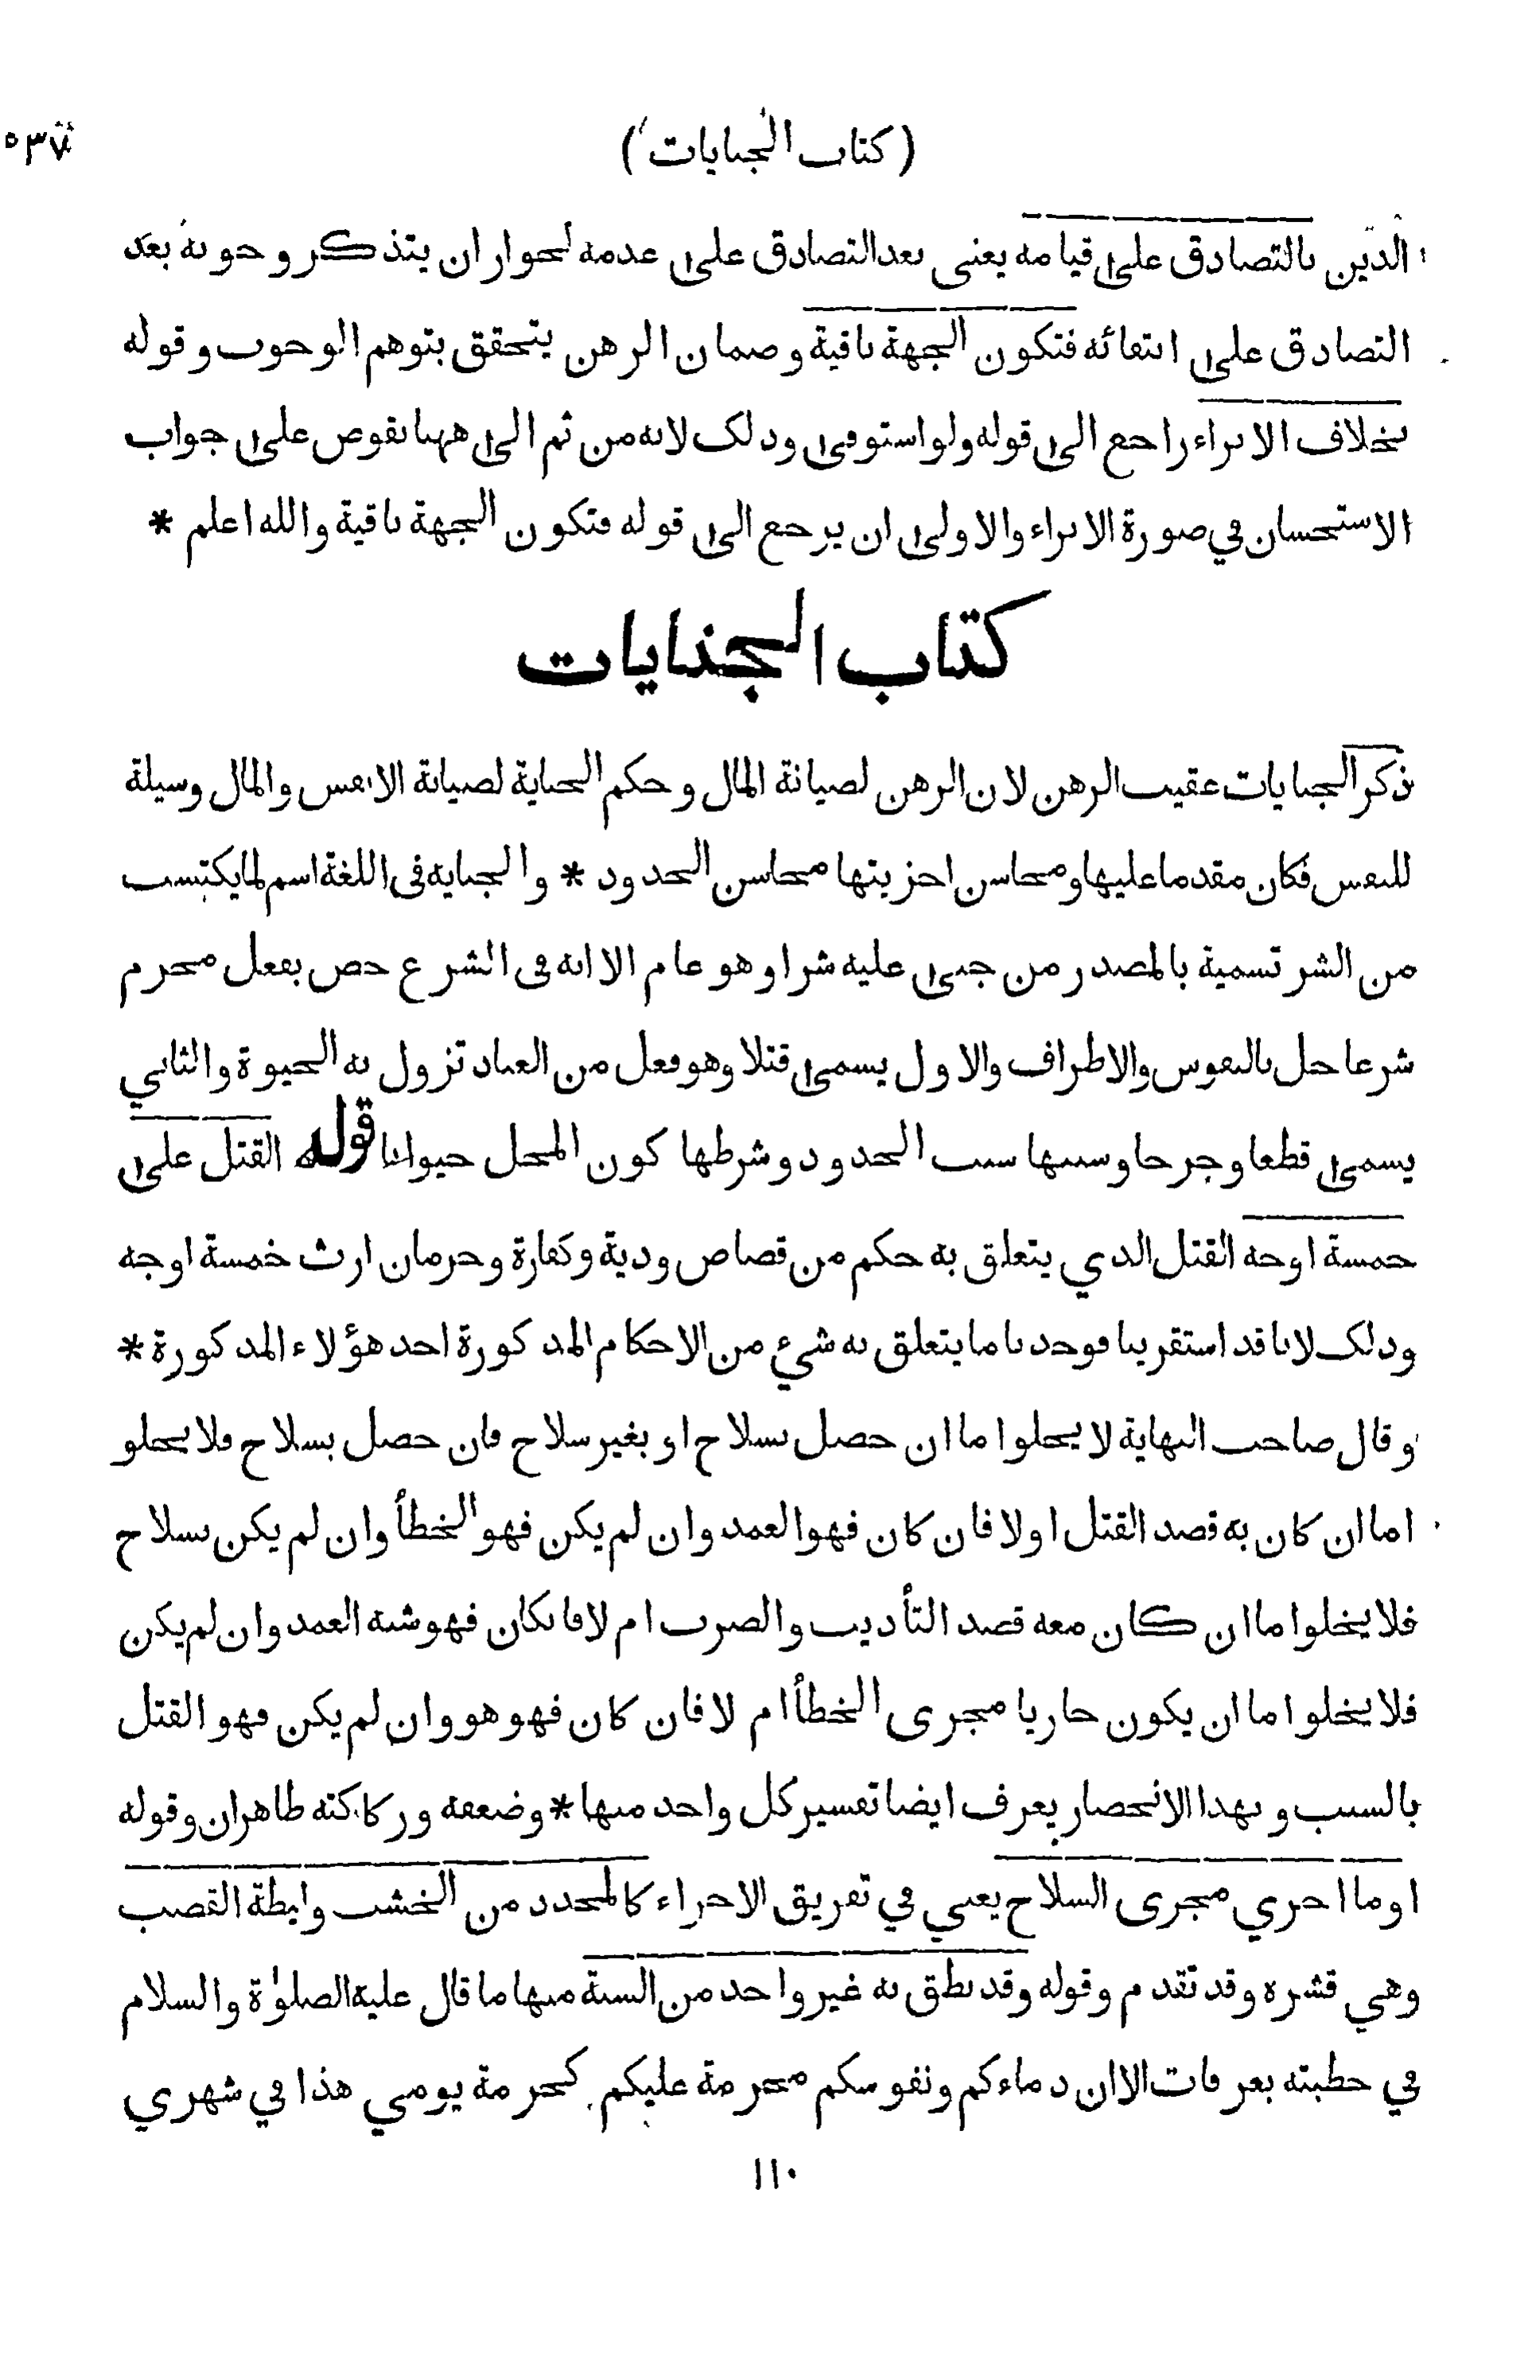 ( كتاب الجنايات )
٥٣٧
الدين بالتصادق على قيامه يعنى بعد التصادق على عدمه لجواز ان يتذكر وجوبه بعد
التصادق على انتفائه فتكون الجهة باقية وضمان الرهن يتحقق بتوهم الوجوب وقوله
بخلاف الابراء راجع الى قوله ولو استوفى وذلك لانه من ثم الى ههنا نقوض على جواب
الاستحسان في صورة الابراء والاولى ان يرجع الى قوله فتكون الجهة باقية والله اعلم *
كتاب الجنايات
ذكر الجنايات عقيب الرهن لان الرهن لصيانة المال وحكم الجناية لصيانة الانفس والمال وسيلة
للنفس فكان مقدما عليها ومحاسن اجزيتها محاسن الحدود * والجنايه فى اللغة اسم لما يكتسب
من الشر تسمية بالمصدر من جنى عليه شرا وهو عام الا انه فى الشرع خص بفعل محرم
شرعا حل بالنفوس والاطراف والاول يسمى قتلا وهو فعل من العباد تزول به الحيوة والثاني
يسمى قطعا وجرحا وسببها سبب الحدود وشرطها كون المحل حيوانا قوله القتل على
خمسة اوجه القتل الذي يتعلق به حكم من قصاص ودية وكفارة وحرمان ارث خمسة اوجه
وذلك لانا قد استقرينا فوجدنا ما يتعلق به شيء من الاحكام المذكورة احد هؤلاء المذكورة *
وقال صاحب النهاية لا يخلوا ما ان حصل بسلاح او بغير سلاح فان حصل بسلاح فلا يخلو
اما ان كان به قصد القتل اولا فان كان فهو العمد وان لم يكن فهو الخطأ وان لم يكن بسلاح
فلا يخلوا ما ان كان معه قصد التأديب والضرب ام لا فانكان فهو شبه العمد وان لم يكن
فلا يخلوا ما ان يكون جاريا مجرى الخطأ ام لا فان كان فهو هو وان لم يكن فهو القتل
بالسبب وبهذا الانحصار يعرف ايضا تفسير كل واحد منها * وضعفه وركاكته ظاهران وقوله
او ما اجري مجرى السلاح يعني في تفريق الاجزاء كالمحدد من الخشب وليطة القصب
وهي قشره وقد تقدم وقوله وقد نطق به غير واحد من السنة منها ما قال عليه الصلوٰة والسلام
في خطبته بعرفات الا ان دماءكم ونفوسكم محرمة عليكم كحرمة يومي هذا في شهري
١١٠